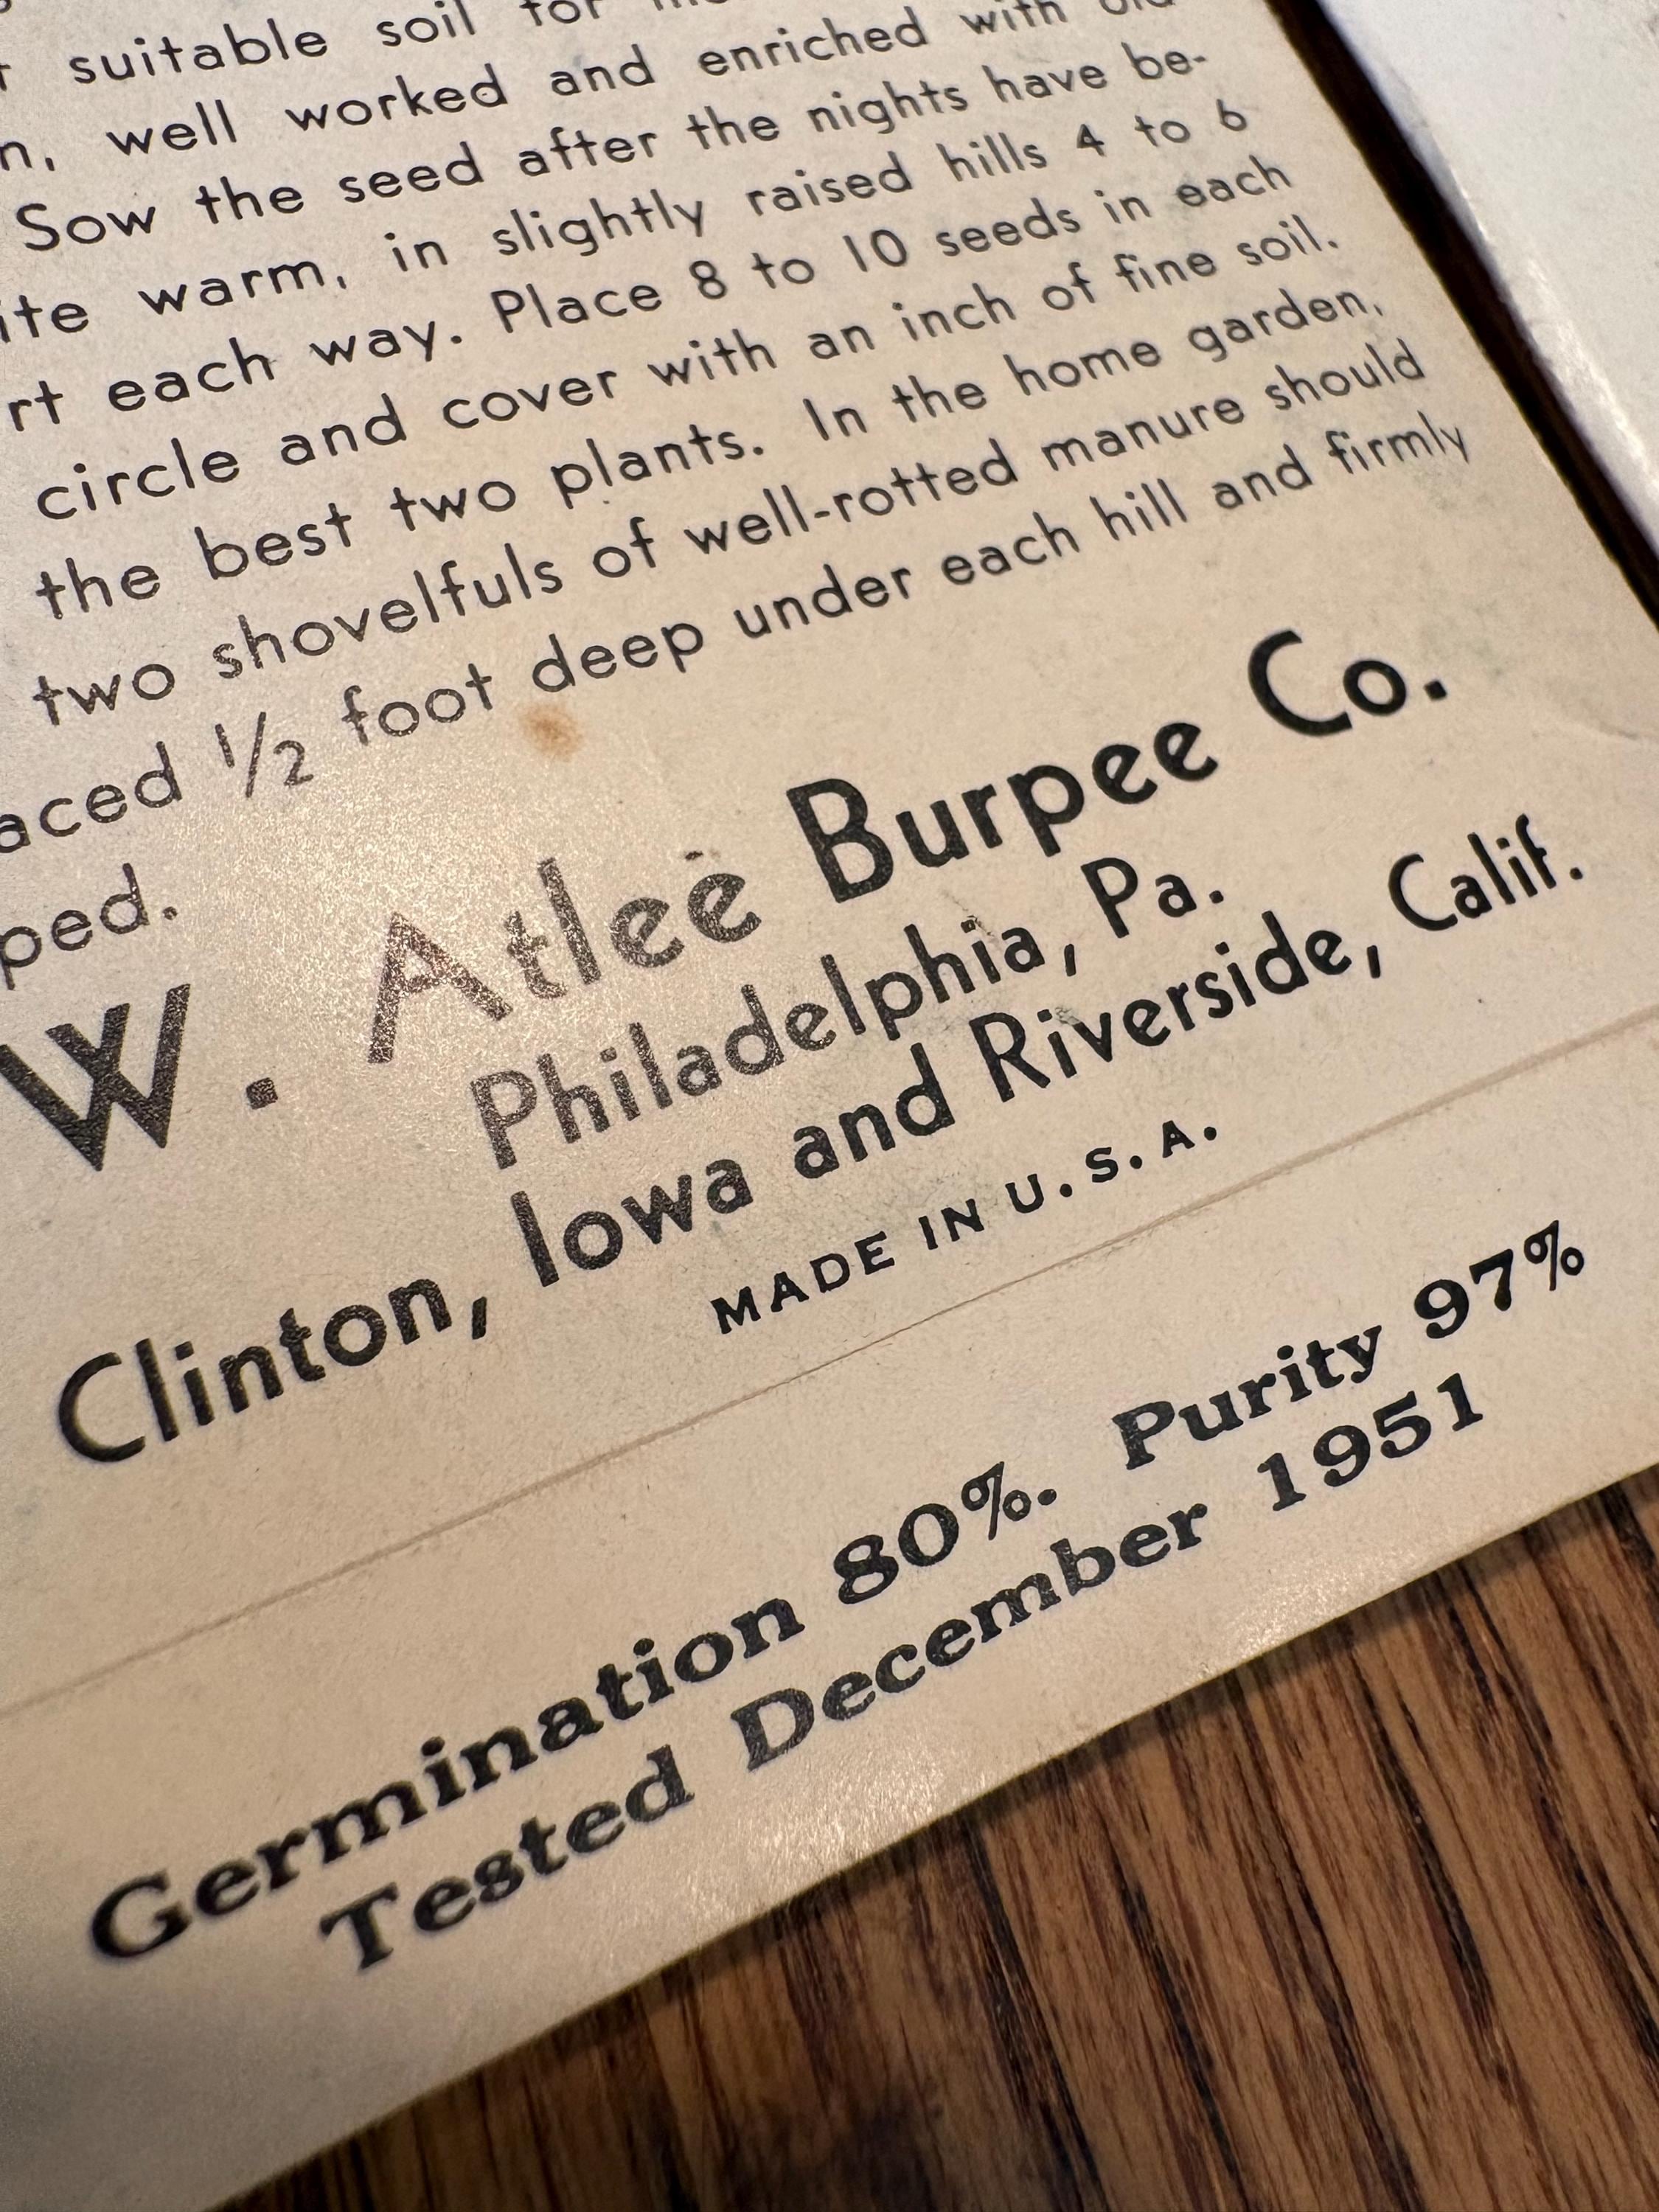 suitable soil for
well worked and enriched with
Sow the seed after the nights have be-
ite warm, in slightly raised hills 4 to 6
rt each way. Place 8 to 10 seeds in each
circle and cover with an inch of fine soil.
the best two plants. In the home garden,
two shovelfuls of well-rotted manure should
aced 1/2 foot deep under each hill and firmly
ped.
W. Atlee Burpee Co.
Philadelphia, Pa.
Clinton, Iowa and Riverside, Calif.
MADE IN U.S.A.
Germination 80%. Purity 97%
Tested December 1951